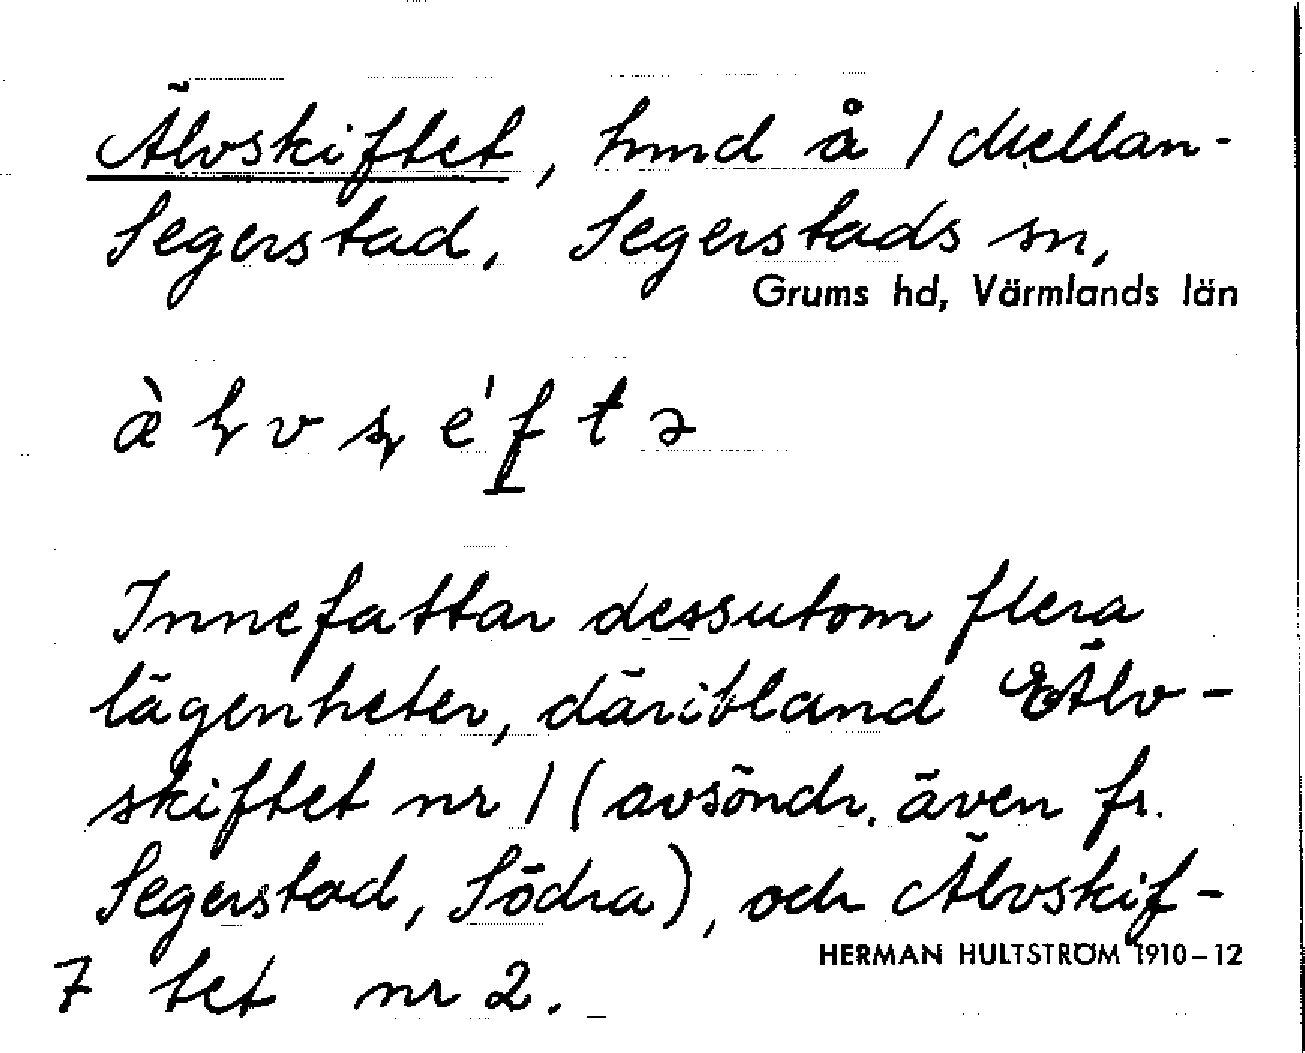 Älvskiftet, hmd å / Mellan-
Segerstad, Segerstads sn,
Grums hd, Värmlands län
Innefattar dessutom flera
lägenheter, däribland Älv-
skiftet nr 1 (avsöndr. även fr.
Segerstad, Södra), och Älvskif-
HERMAN HULTSTRÖM 1910-12
7 tet nr 2.